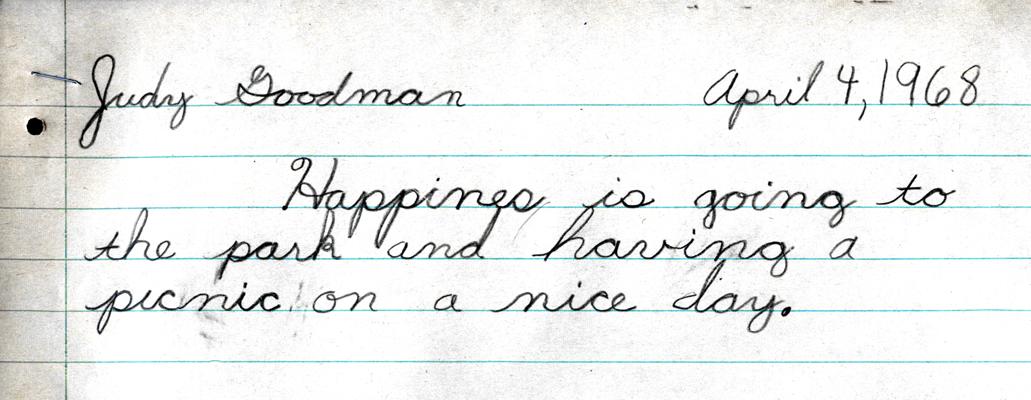 Judy Goodman April 4, 1968
Happines is going to
the park and having a
picnic on a nice day.